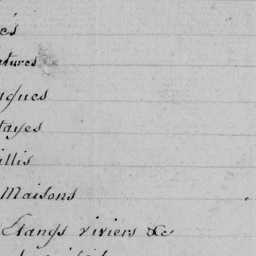 és
atures
ques
tayes
illis
Maisons
Etangs viviers &c